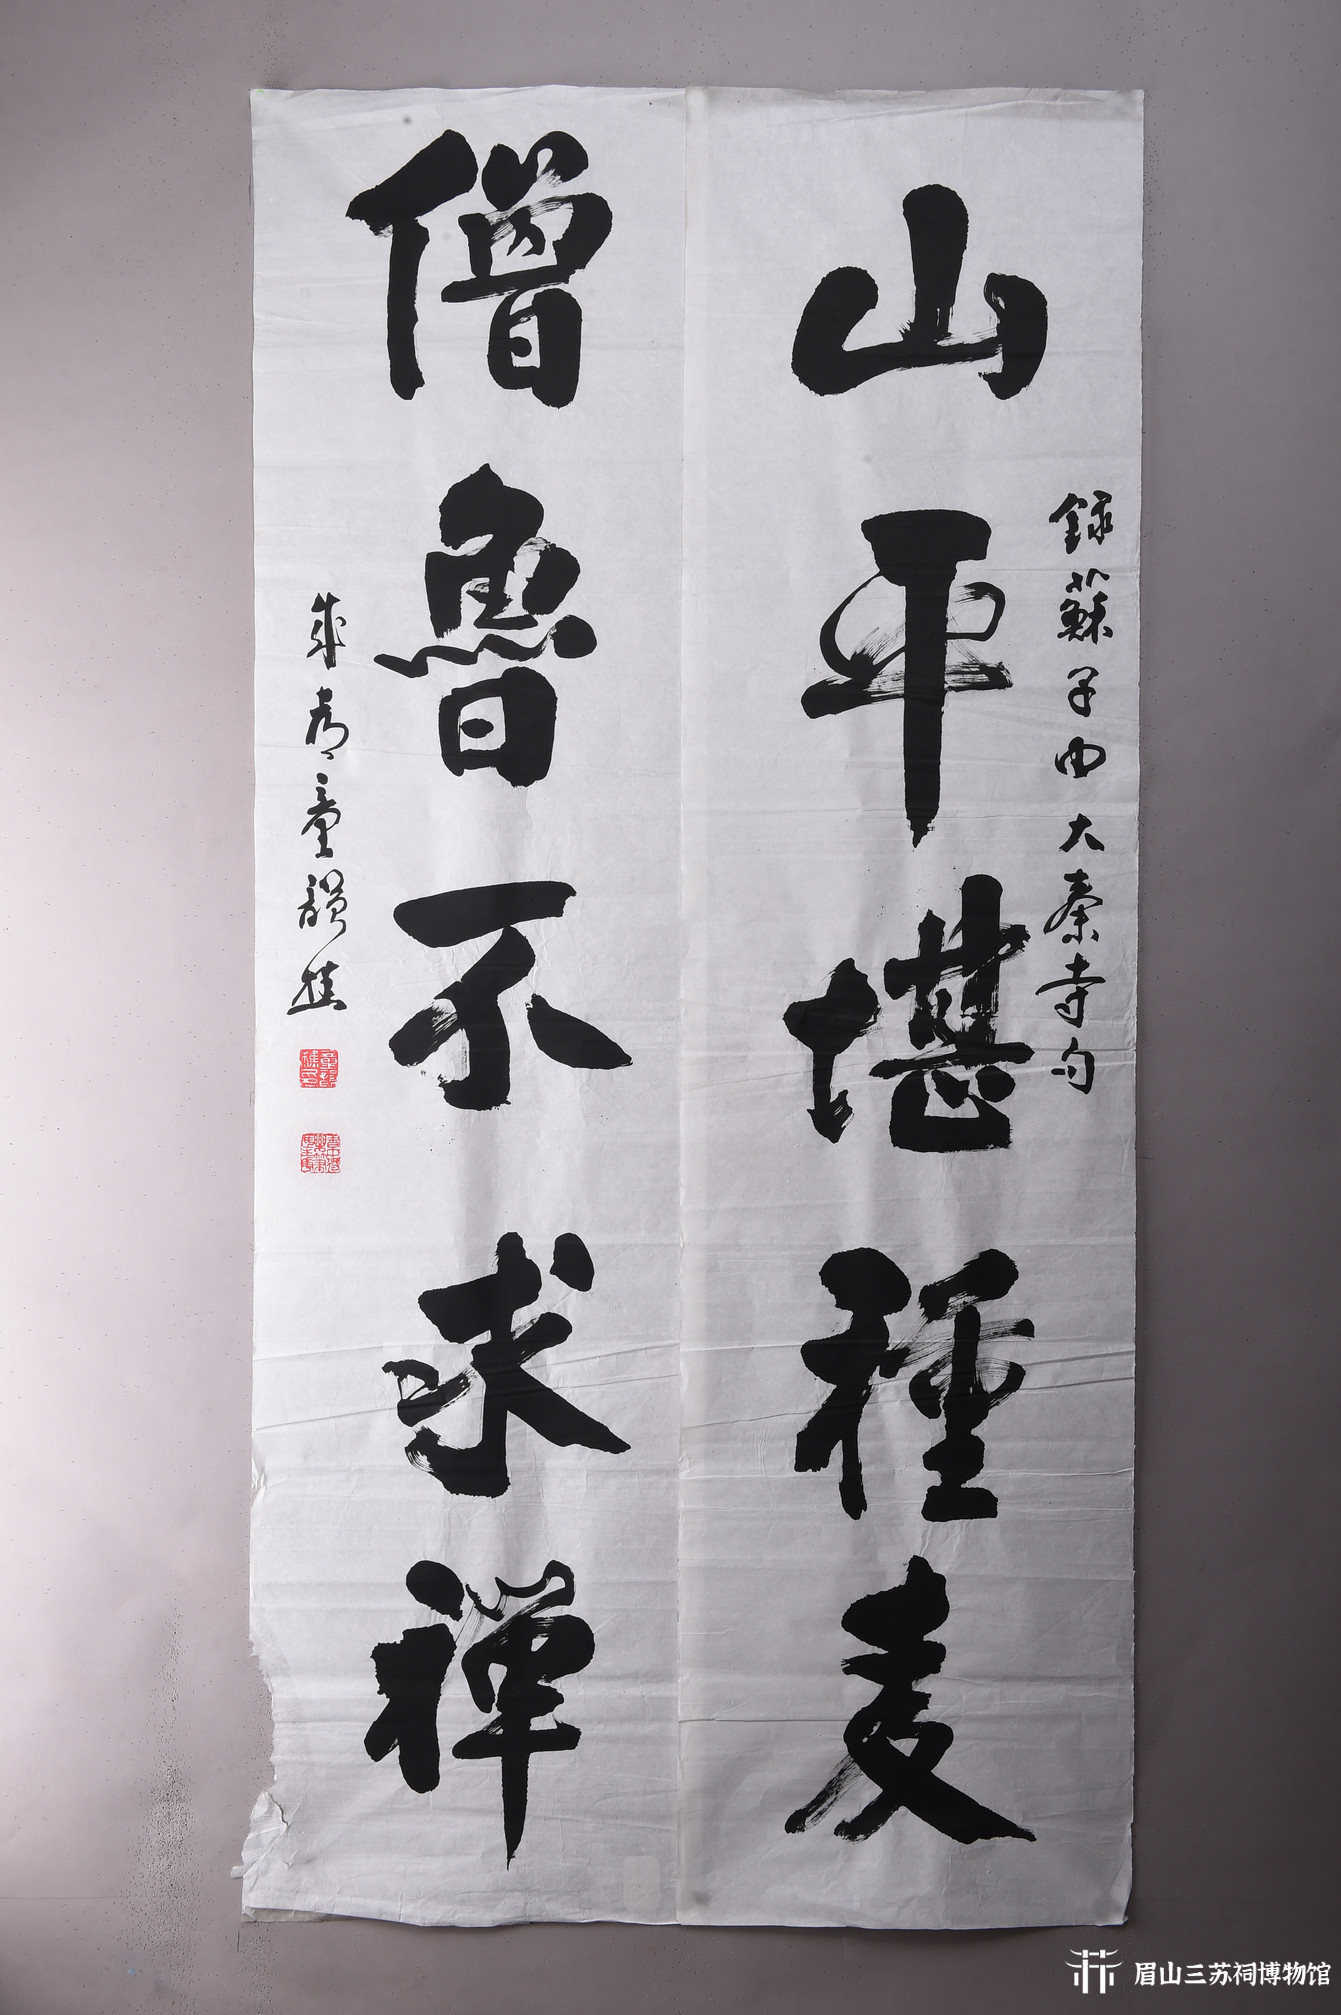 山平堪種麦
錄蘇子由大秦寺句
僧魯不求禪
成都童韻樵
眉山三苏祠博物馆